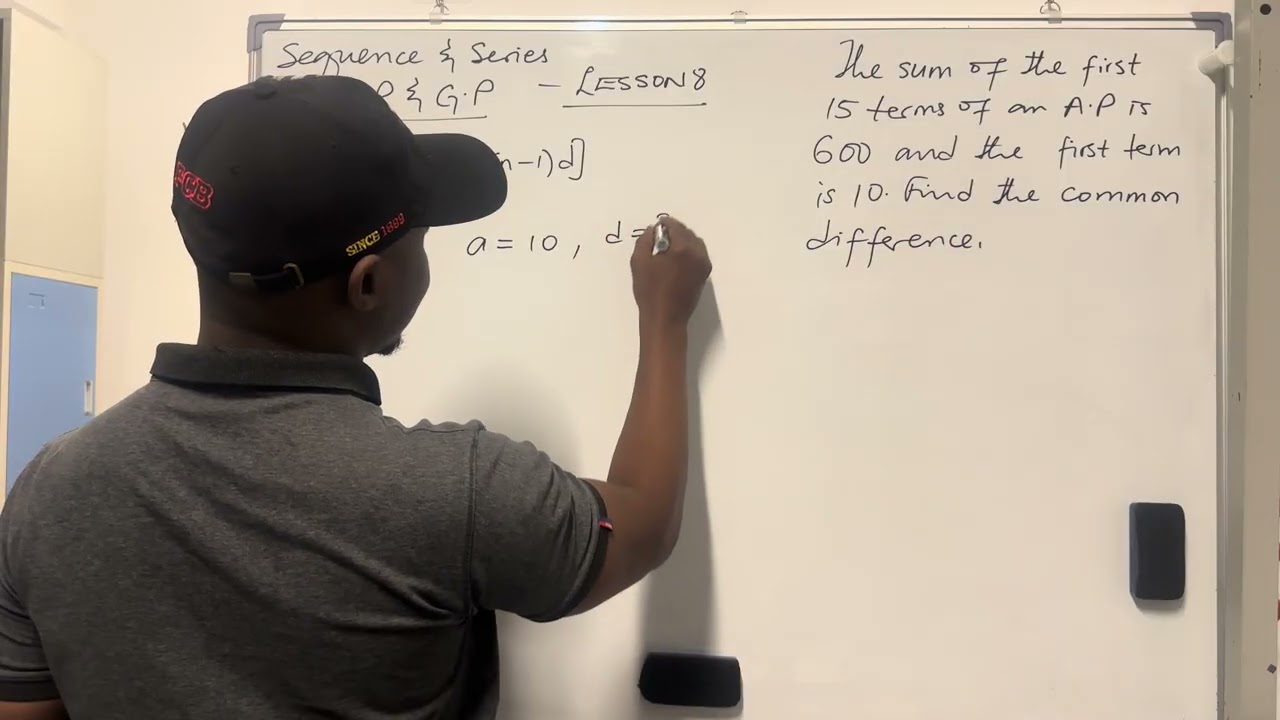 Sequence & Series
P & G.P - LESSON 8
n-1)d]
a = 10, d =
The sum of the first
15 terms of an A.P is
600 and the first term
is 10. Find the common
difference.
FCB
SINCE 1899